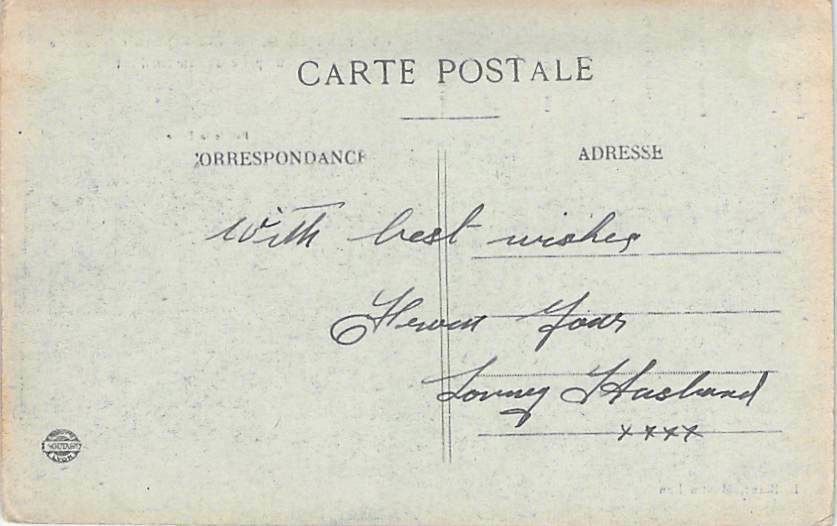 CARTE POSTALE
CORRESPONDANCE
ADRESSE
With best wishes
From Your
Loving Husband
xxxx